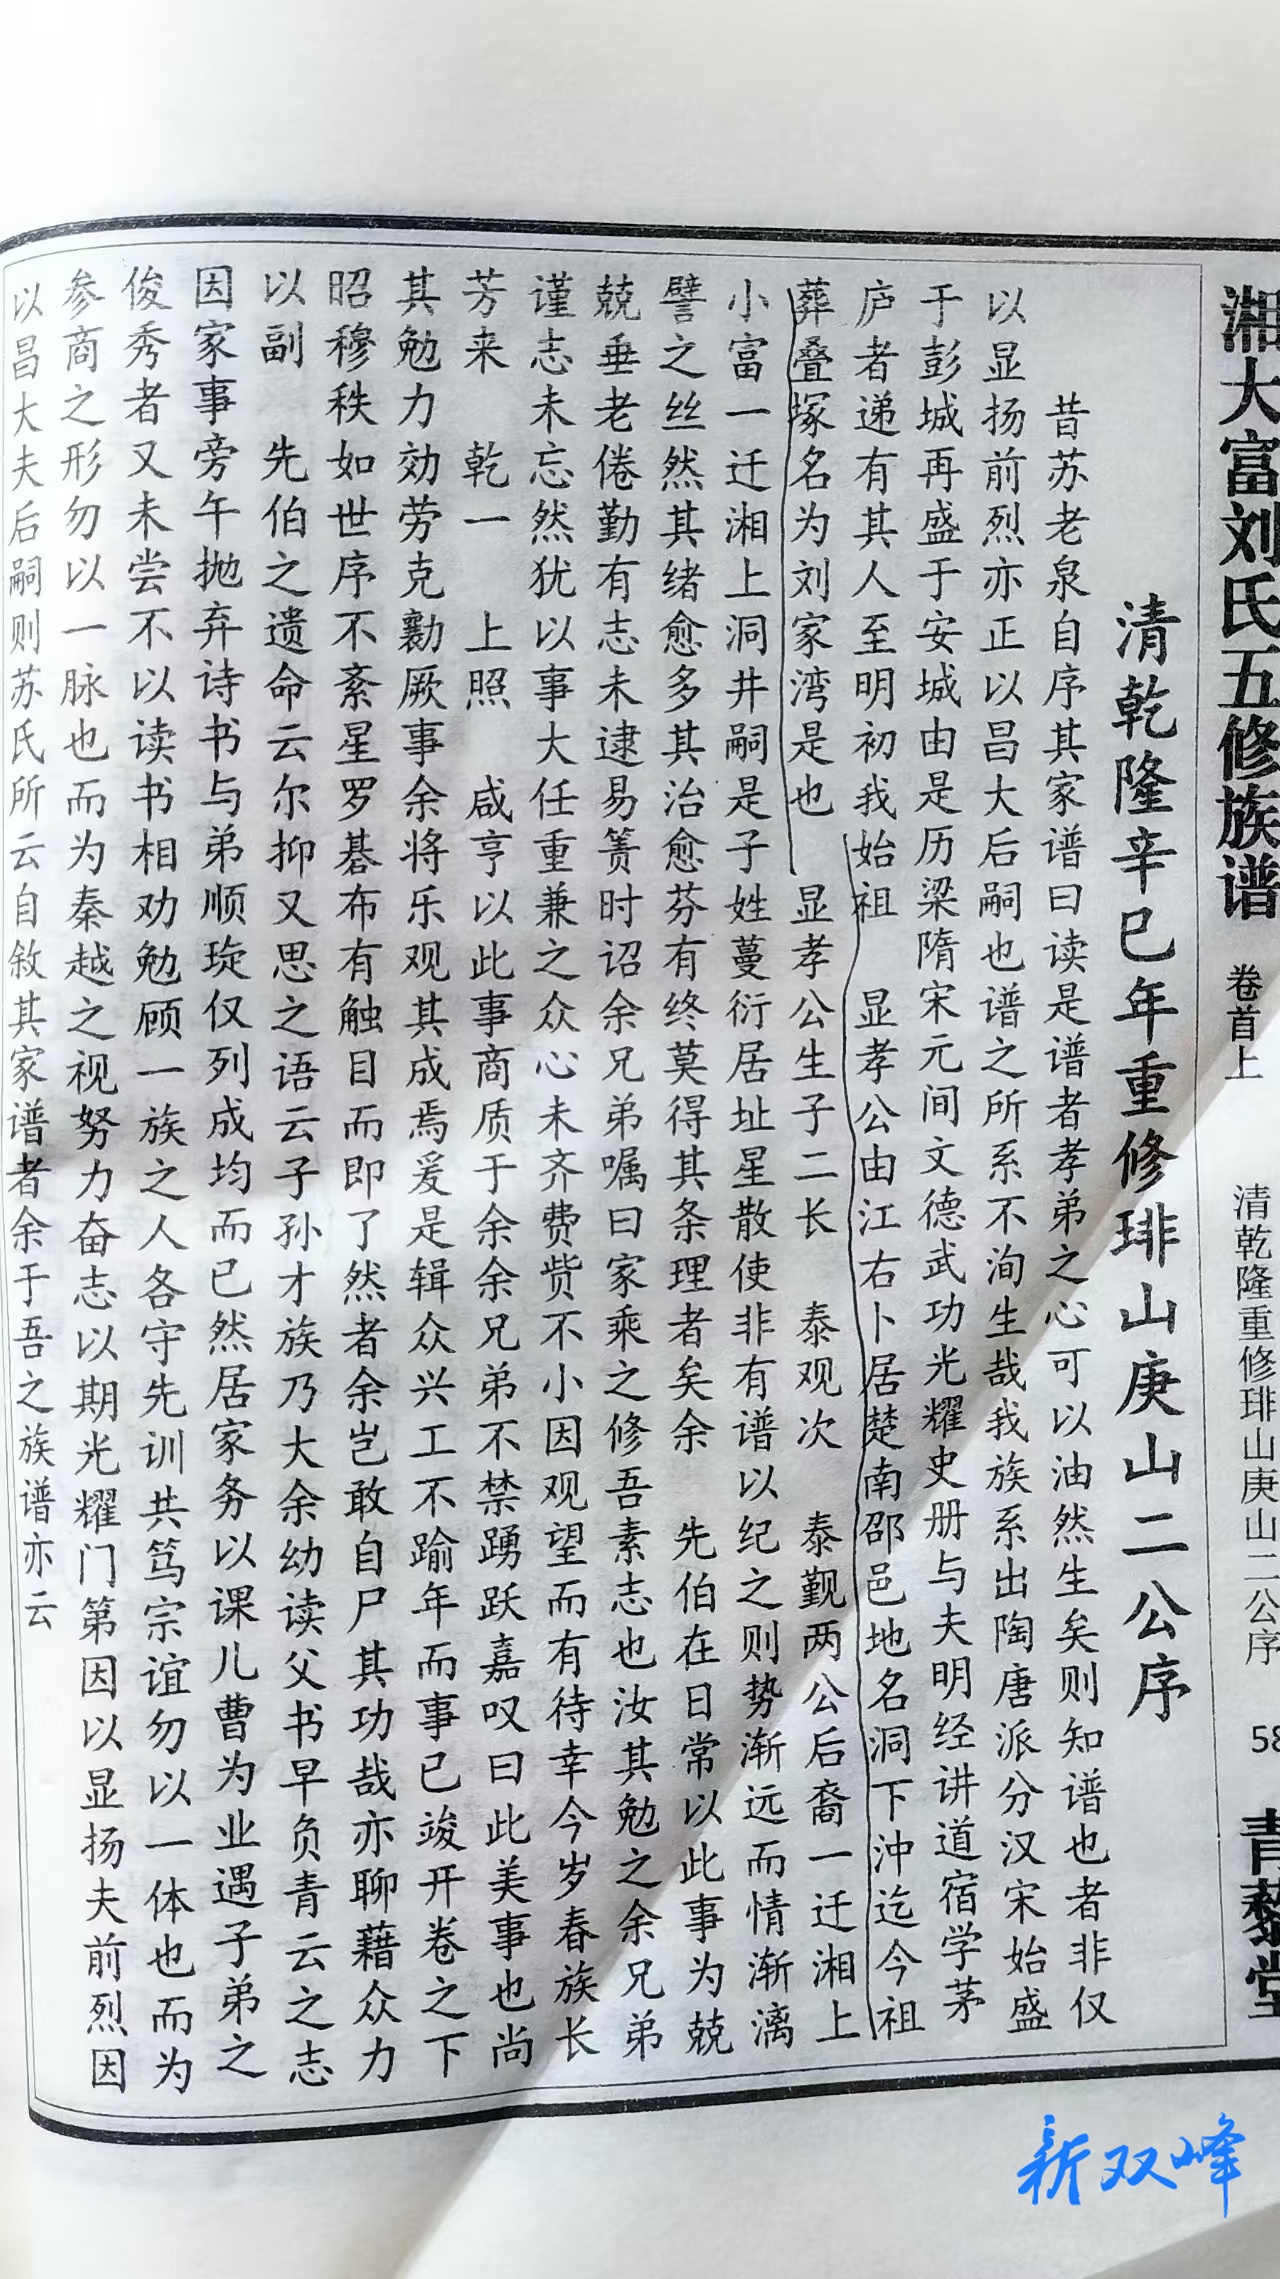 湘大富刘氏五修族谱 卷首上 清乾隆重修琲山庚山二公序 58 青藜堂
清乾隆辛巳年重修琲山庚山二公序
昔苏老泉自序其家谱曰读是谱者孝弟之心可以油然生矣则知谱也者非仅
以显扬前烈亦正以昌大后嗣也谱之所系不洵生哉我族系出陶唐派分汉宋始盛
于彭城再盛于安城由是历梁隋宋元间文德武功光耀史册与夫明经讲道宿学茅
庐者递有其人至明初我始祖 显孝公由江右卜居楚南邵邑地名洞下冲迄今祖
葬叠塚名为刘家湾是也 显孝公生子二长 泰观次 泰觐两公后裔一迁湘上
小富一迁湘上洞井嗣是子姓蔓衍居址星散使非有谱以纪之则势渐远而情渐漓
譬之丝然其绪愈多其治愈芬有终莫得其条理者矣余 先伯在日常以此事为兢
兢垂老倦勤有志未逮易箦时诏余兄弟嘱曰家乘之修吾素志也汝其勉之余兄弟
谨志未忘然犹以事大任重兼之众心未齐费赀不小因观望而有待幸今岁春族长
芳来 乾一 上照 咸亨以此事商质于余余兄弟不禁踊跃嘉叹曰此美事也尚
其勉力効劳克勷厥事余将乐观其成焉爰是辑众兴工不踰年而事已竣开卷之下
昭穆秩如世序不紊星罗碁布有触目而即了然者余岂敢自尸其功哉亦聊藉众力
以副 先伯之遗命云尔抑又思之语云子孙才族乃大余幼读父书早负青云之志
因家事旁午抛弃诗书与弟顺琁仅列成均而已然居家务以课儿曹为业遇子弟之
俊秀者又未尝不以读书相劝勉顾一族之人各守先训共笃宗谊勿以一体也而为
参商之形勿以一脉也而为秦越之视努力奋志以期光耀门第因以显扬夫前烈因
以昌大夫后嗣则苏氏所云自敘其家谱者余于吾之族谱亦云
新双峰